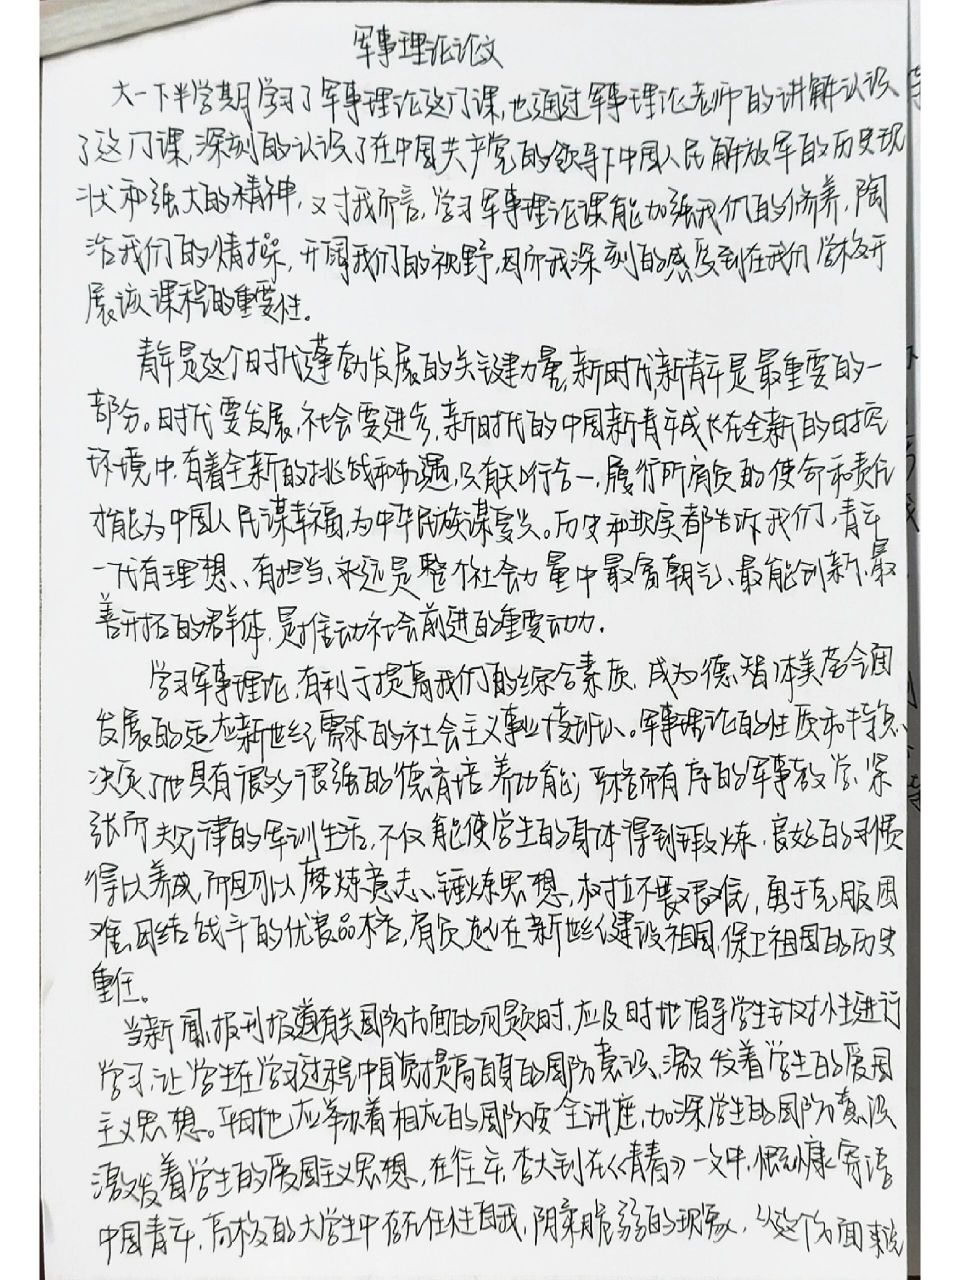 军事理论论文
大一下半学期学习了军事理论这门课,也通过军事理论老师的讲解认识
了这门课,深刻的认识了在中国共产党的领导下中国人民解放军的历史现
状和强大的精神,对我而言,学习军事理论课能加强我们的修养,陶
冶我们的情操,开阔我们的视野,因而我深刻的感受到在我们学校开
展该课程的重要性。
青年是这个时代蓬勃发展的关键力量,新时代新青年是最重要的一
部分。时代要发展,社会要进步,新时代的中国新青年成长在全新的时空
环境中,有着全新的挑战和机遇,只有知行合一,履行所肩负的使命和责任
才能为中国人民谋幸福,为中华民族谋复兴。历史和现实都告诉我们,青年
一代有理想、有担当,永远是整个社会力量中最富朝气、最能创新、最
善开拓的群体,是推动社会前进的重要动力.
学习军事理论,有利于提高我们的综合素质,成为德、智、体美劳全面
发展的适应新世纪需求的社会主义事业接班人。军事理论的性质和特点,
决定了他具有很多很强的德育培养功能;严格而有序的军事教学,紧
张而规律的军训生活,不仅能使学生的身体得到锻炼,良好的习惯
得以养成,而且可以磨炼意志、锤炼思想,树立不畏艰难,勇于克服困
难,团结战斗的优良品格,肩负起在新世纪建设祖国,保卫祖国的历史
重任。
当新闻、报刊报道有关国防方面的问题时,应及时地倡导学生针对性进行
学习,让学生在学习过程中自觉提高自身的国防意识,激发着学生的爱国
主义思想。平时也应举办着相应的国防安全讲座,加深学生的国防意识
激发着学生的爱国主义思想,在往年,李大钊在《青春》一文中,慷慨寄语
中国青年,高校的大学生中存在任性自我,阴柔脆弱的现象,从这个方面来说